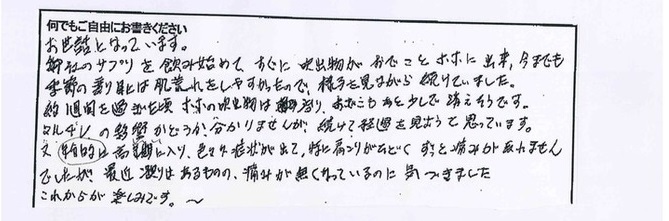 何でもご自由にお書きください
お世話となっています。
御社のサプリを飲み始めて、すぐに吹出物がおでことホホに出来、今までも
季節の変り目には肌荒れをしやすかったので、様子を見ながら続けていました。
約1週間を過ぎた頃ホホの吹出物は治り、おでこもあと少しで消えそうです。
の影響かどうか分かりませんが、続けて経過を見ようと思っています。
又、に高期に入り、色々な症状が出て、特に肩こりがひどくずっと痛みが取れません
でしたが最近凝りはあるものの、痛みが無くなっているのに気づきました
これからが楽しみです。〜